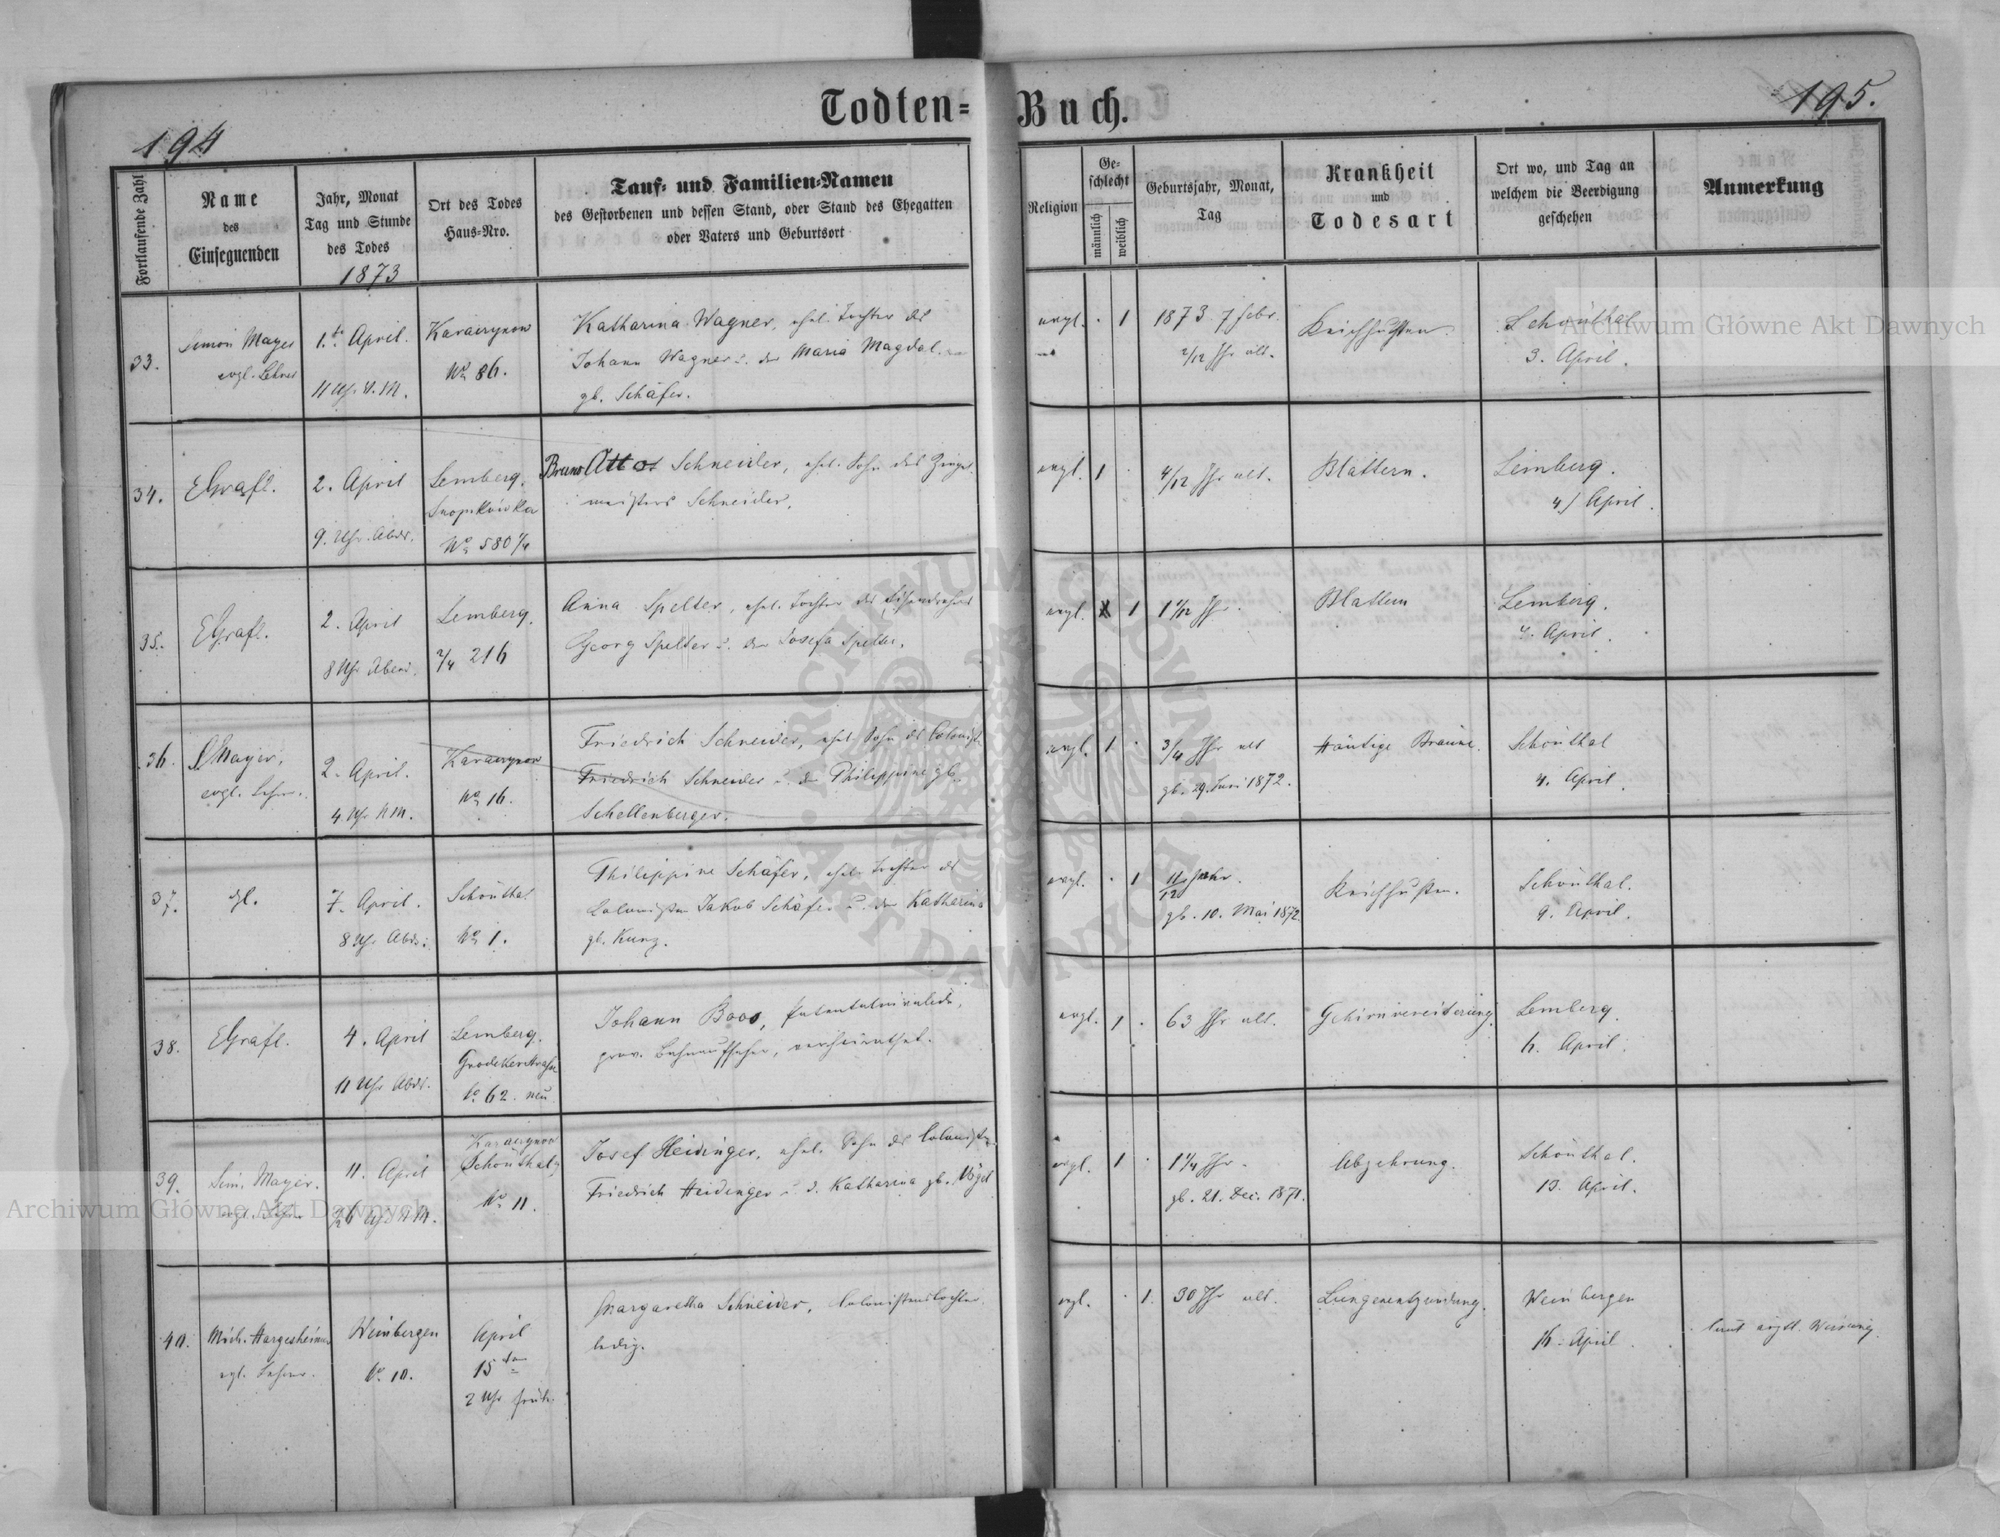 Todten-Buch.
194
195.
Fortlaufende Zahl
Name
des
Einsegnenden
Jahr, Monat
Tag und Stunde
des Todes
1873
Ort des Todes
Haus-Nro.
Tauf- und Familien-Namen
des Gestorbenen und dessen Stand, oder Stand des Ehegatten
oder Vaters und Geburtsort
Religion
Ge-
schlecht
männlich
weiblich
Geburtsjahr, Monat,
Tag
Krankheit
und
Todesart
Ort wo, und Tag an
welchem die Beerdigung
geschehen
Anmerkung
33.
Simon Mayer
evgl. Lehrer
1. April.
11 Uhr V.M.
No 86.
Katharina Wagner, ehel. Tochter des
Johann Wagner u. der Maria Magdal.
gb. Schäfer.
evgl.
1
1873 7 Febr.
2/12 Jhr alt.
Keichhusten.
Schönthal
3. April.
34.
EGrafl.
2. April
9. Uhr Abds.
Lemberg.
No 580 4/4
Bruno Schneider, ehel. Sohn des
meisters Schneider.
evgl.
1
4/12 Jhr alt.
Blattern.
Lemberg.
4/ April.
35.
EGrafl.
2. April
8 Uhr Abend.
Lemberg.
2/4 216
Anna Spelter, ehel. Tochter des
Georg Spelter u. der Josefa Spelter.
evgl.
1
Jhr.
Blattern
Lemberg.
4. April.
36.
S Mayer,
evgl. Lehrer.
2. April.
4 Uhr NM.
No 16.
Friedrich Schneider, ehel. Sohn des Colonist.
Friedrich Schneider u. der Philippine gb.
Schellenberger.
evgl.
1
3/4 Jhr alt
gb. 29. Juni 1872.
Häutige Bräune.
Schönthal
4. April.
37.
dgl.
7. April.
8 Uhr Abds.
Schönthal
No 1.
Philippine Schäfer, ehel. Tochter des
Colonisten Jakob Schäfer u. der Katharina
gb. Kunz.
evgl.
1
11/12 Jahr.
gb. 10. Mai 1872.
Keichhusten.
Schönthal.
9. April.
38.
EGrafl.
4. April
11 Uhr Abds.
Lemberg.
No 62. neu
Johann Boos, Patentalinvalide,
prov. Bahnaufseher, verheirathet.
evgl.
1
63 Jhr alt.
Gehirnvereiterung.
Lemberg.
6. April.
39.
Sim. Mayer.
evgl. Lehrer
11. April
Schönthal
No 11.
Josef Heidinger, ehel. Sohn des Colonisten
Friedrich Heidinger u. d. Katharina gb. Vögel
evgl.
1
1 1/4 Jhr.
gb. 21. Dec. 1871.
Abzehrung.
Schönthal.
13. April.
40.
Mich. Hargesheimer
evgl. Lehrer.
Weinbergen
No 10.
April
15
2 Uhr früh.
Margaretha Schneider, Colonistenstochter
ledig.
evgl.
1.
30 Jhr alt.
Lungenentzündung.
Weinbergen
16. April.
Archiwum Główne Akt Dawnych
Archiwum Główne Akt Dawnych
ARCHIWUM GŁÓWNE
AKT DAWNYCH